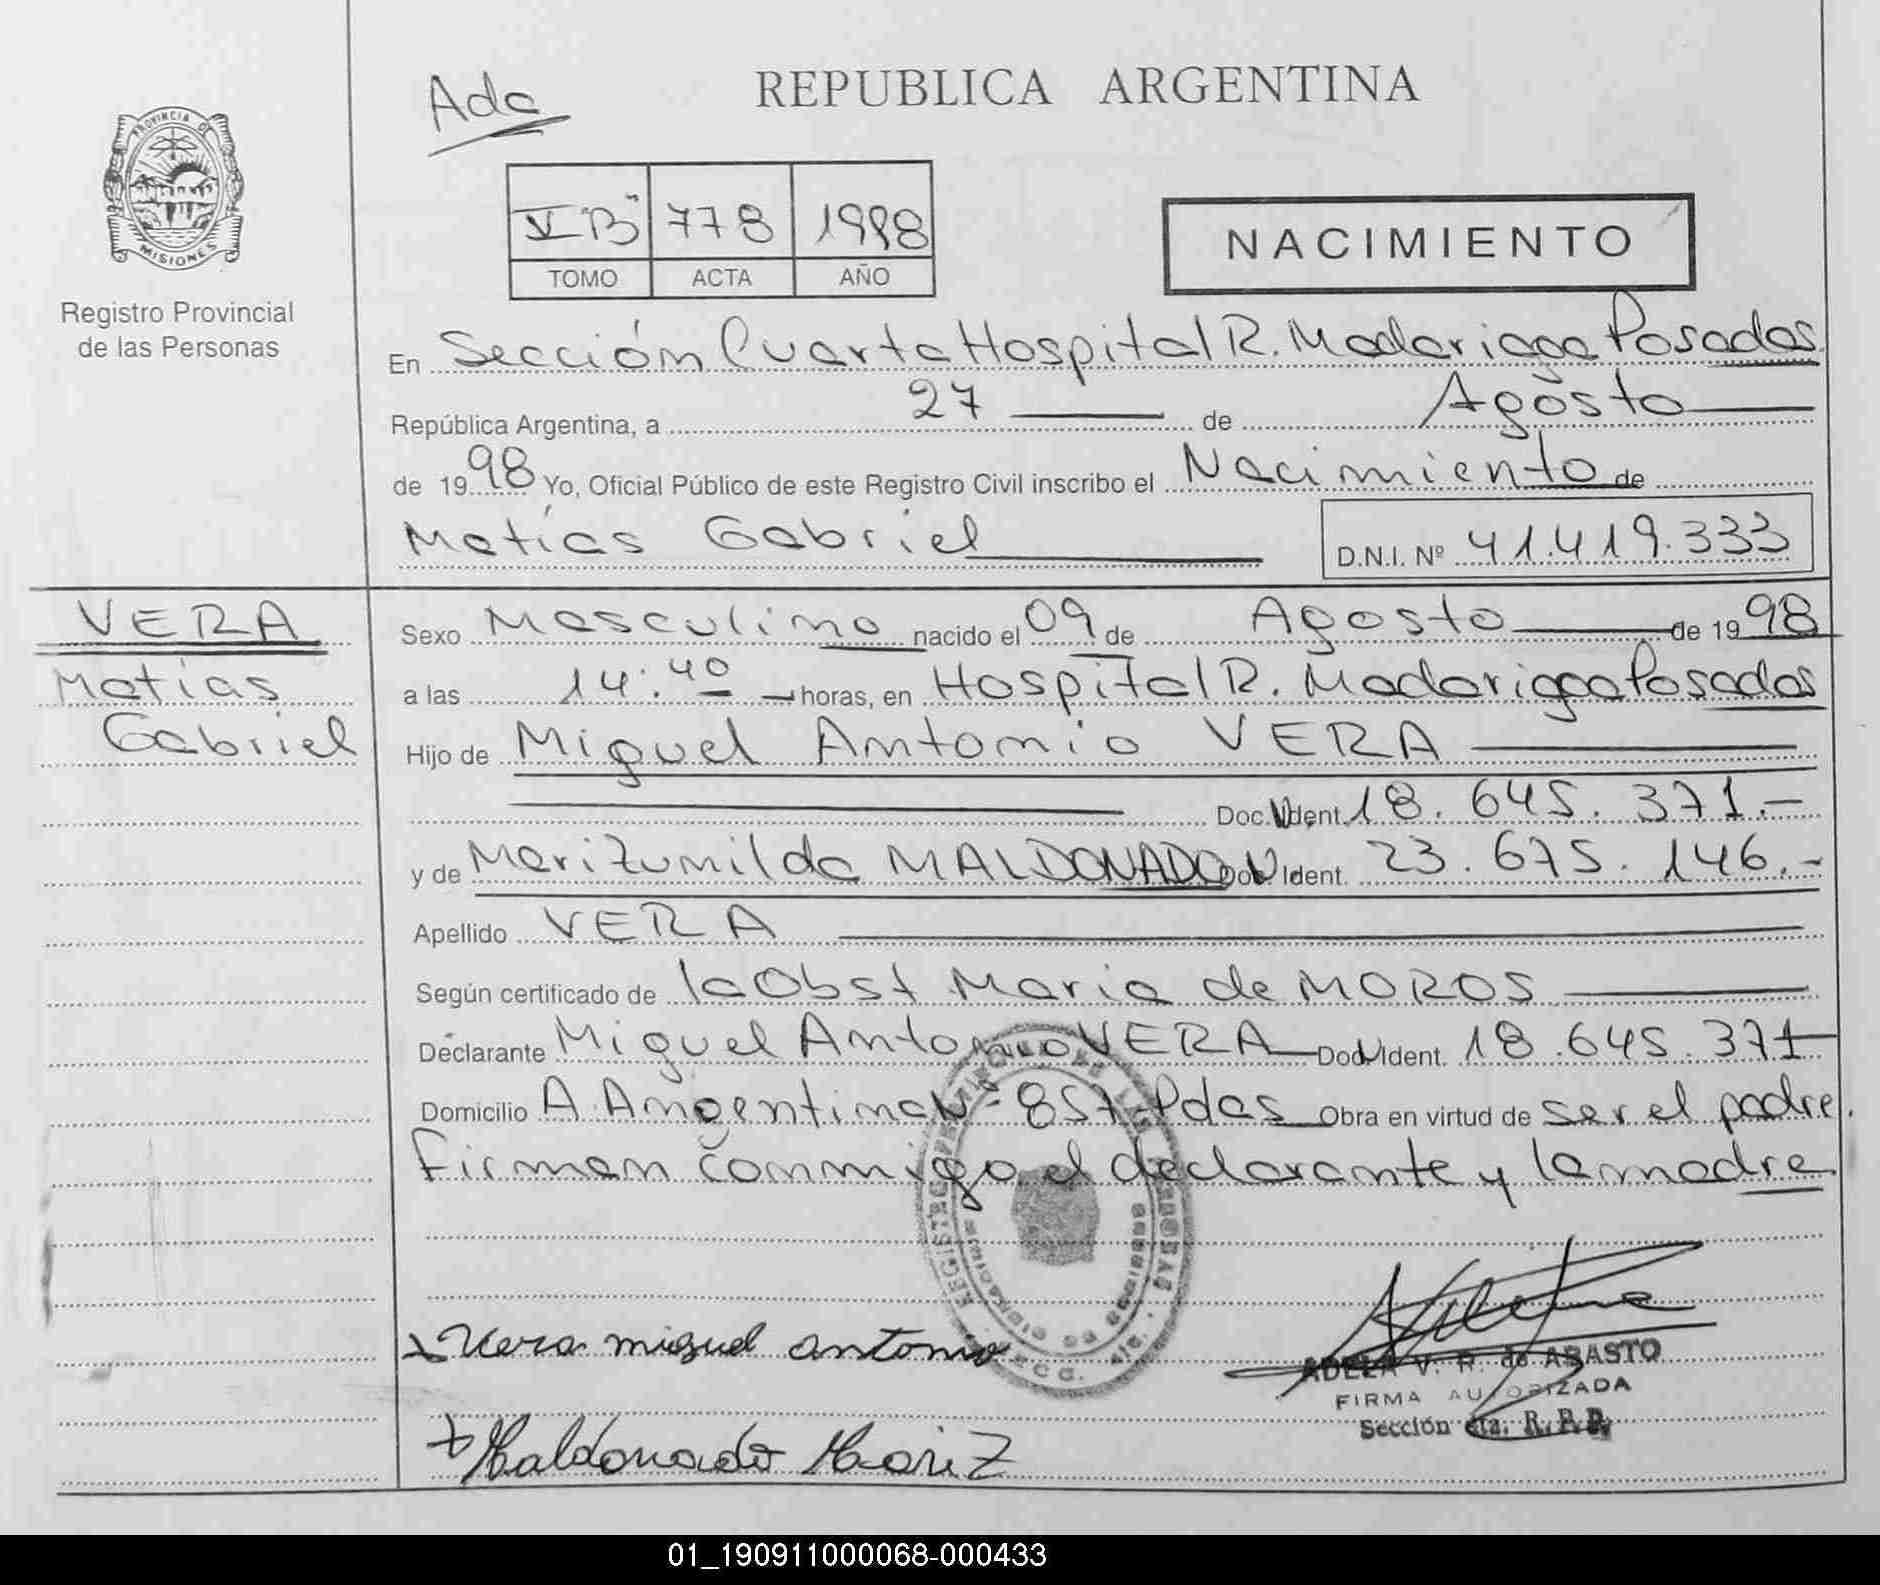 REPUBLICA ARGENTINA
Ada
PROVINCIA DE
MISIONES
Registro Provincial
de las Personas
V "B" 778 1998
TOMO ACTA AÑO
NACIMIENTO
En Sección Cuarta Hospital R. Madariaga Posadas
República Argentina, a 27 de Agosto
de 1998 Yo, Oficial Público de este Registro Civil inscribo el Nacimiento de
Matías Gabriel D.N.I. Nº 41.419.333
VERA
Matías
Gabriel
Sexo Masculino nacido el 09 de Agosto de 1998
a las 14:40 horas, en Hospital R. Madariaga Posadas
Hijo de Miguel Antonio VERA
Doc. Ident. 18.645.371.-
y de Marizumilda MALDONADO Doc. Ident. 23.675.146.-
Apellido VERA
Según certificado de la Obst Maria de MOROS
Declarante Miguel Antonio VERA Doc. Ident. 18.645.371
Domicilio A. Argentina Nº 857-Pdas Obra en virtud de ser el padre.
Firman conmigo el declarante y la madre
Vera miguel antonio
ADELA V. R. de ABASTO
FIRMA AUTORIZADA
Sección 4ta. R.P.P.
Maldonado Mariz
01_190911000068-000433